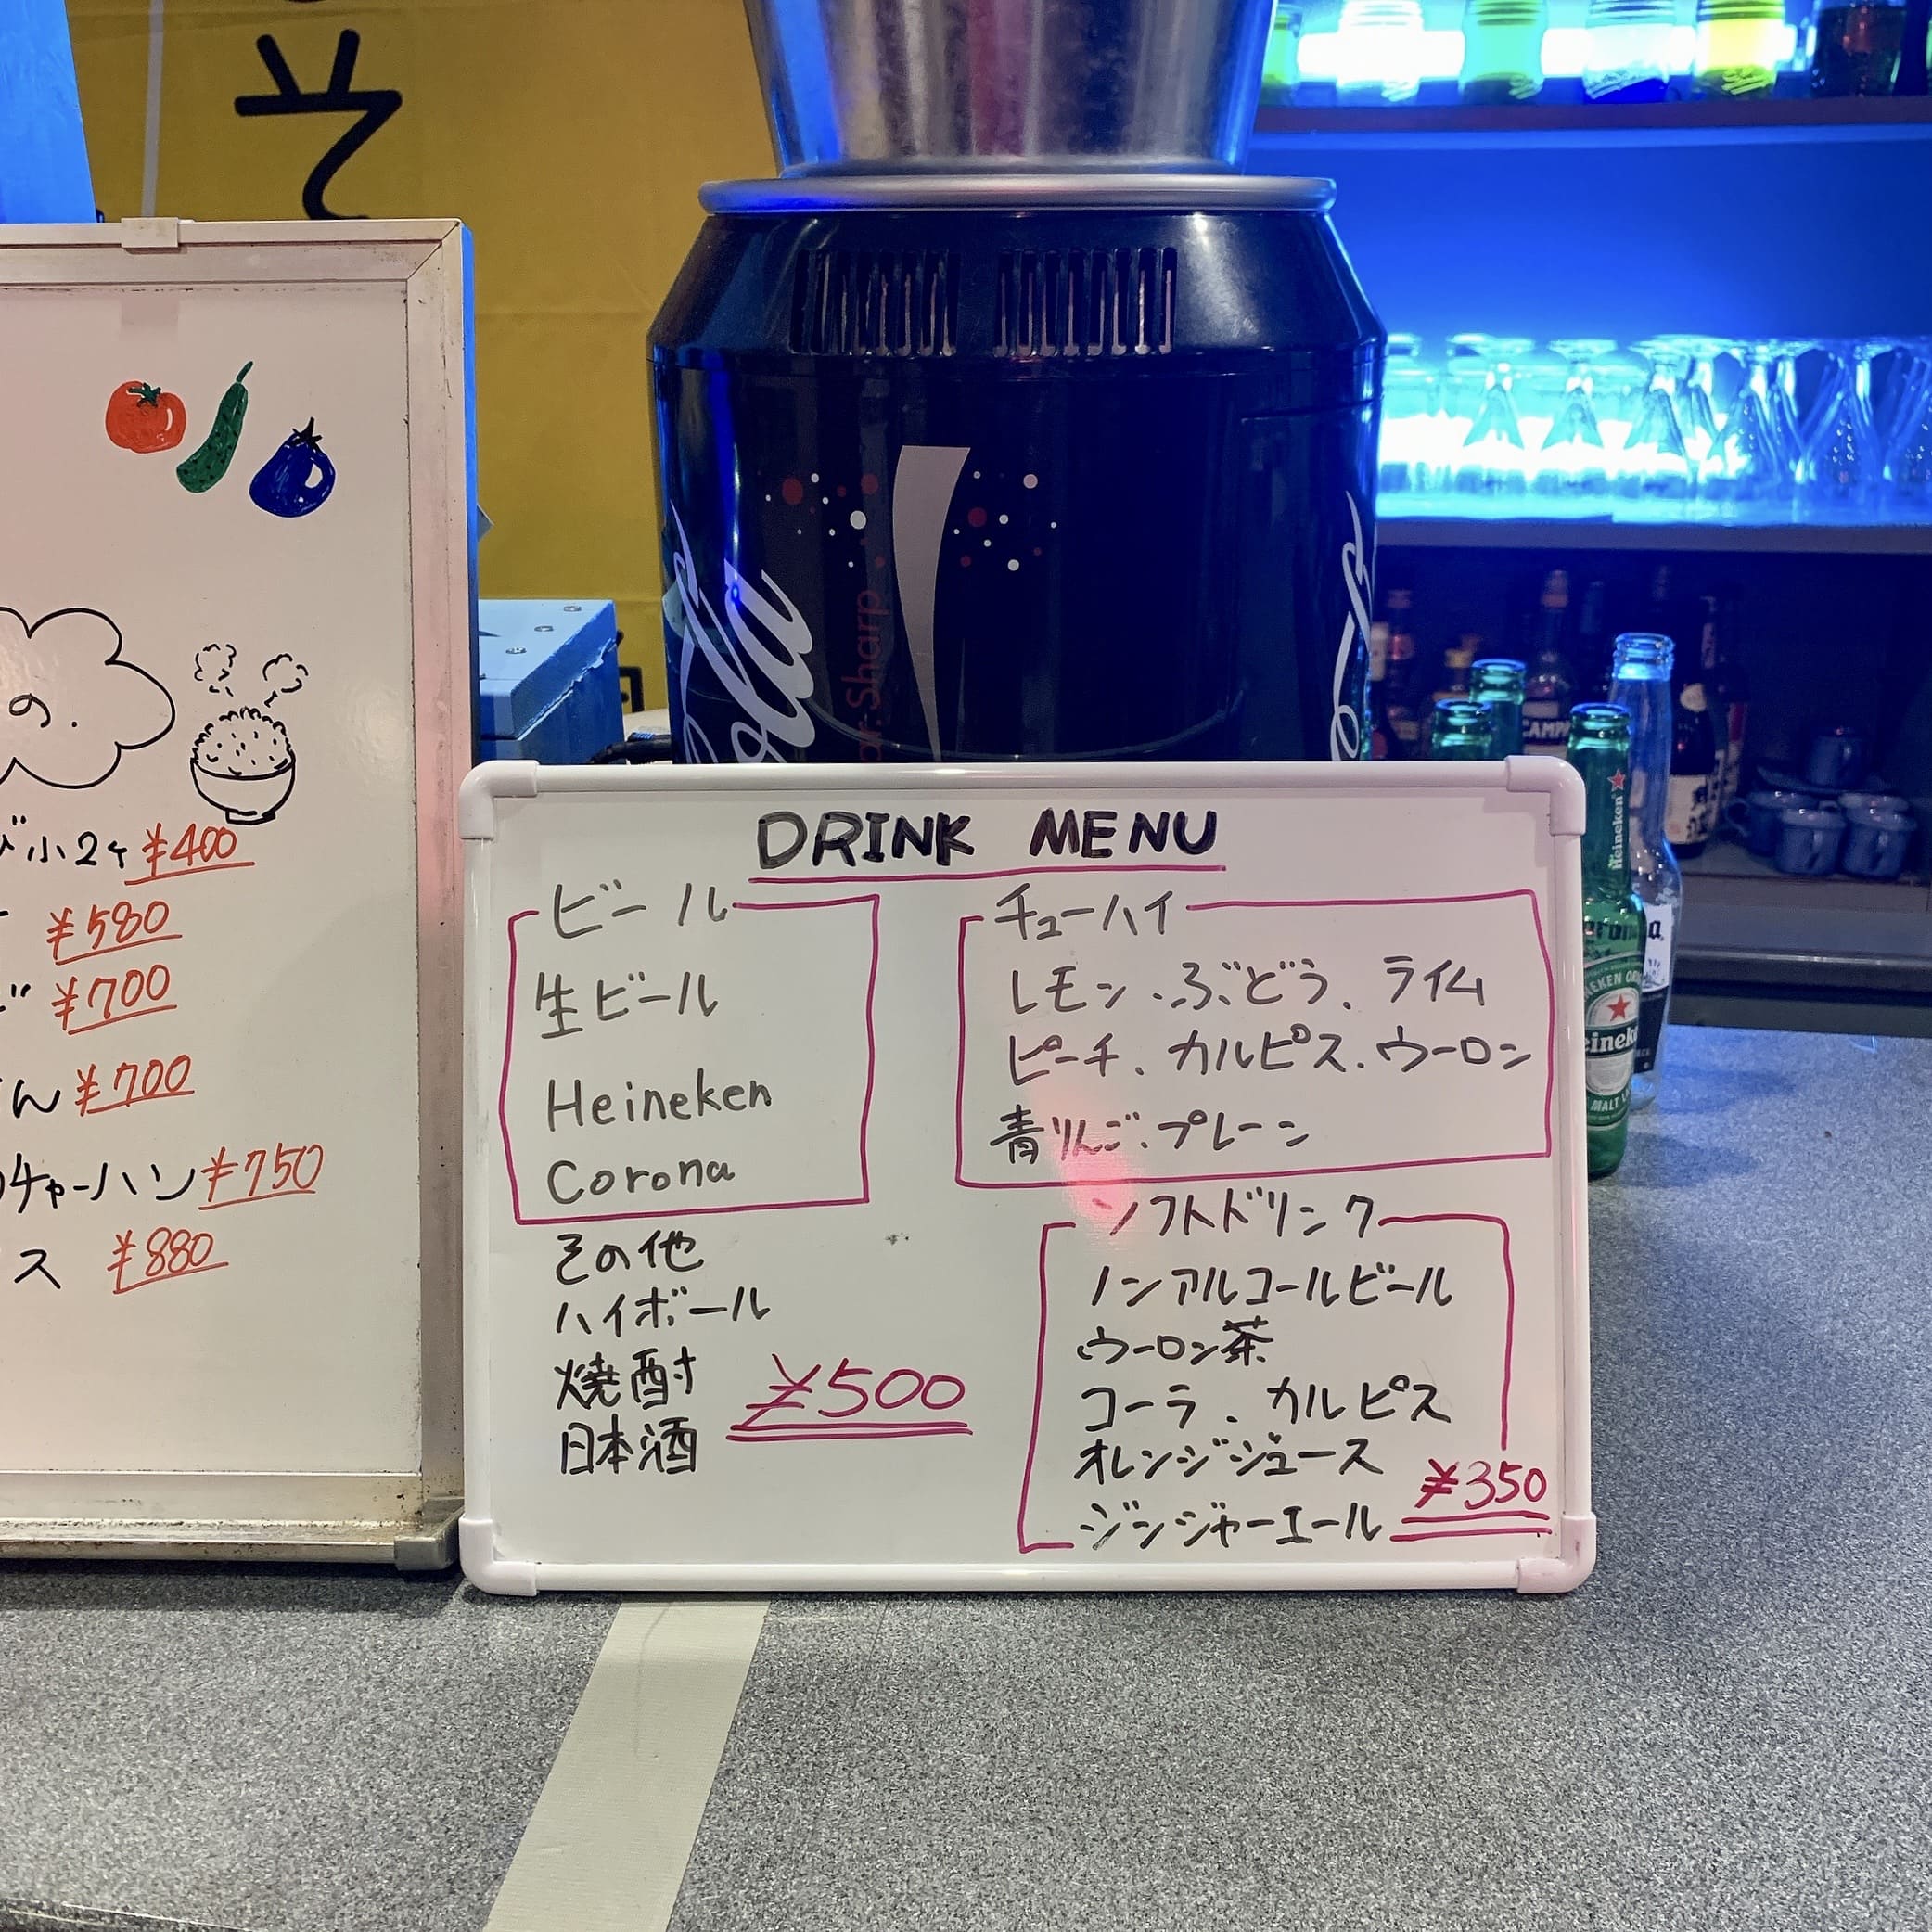 そ
の.
び小2ケ ¥400
¥580
¥700
ん ¥700
チャーハン ¥750
ス ¥880
ola
ar.Sharp
CAMP
Heineken
DRINK MENU
ビール
生ビール
Heineken
Corona
その他
ハイボール
焼酎
日本酒
¥500
チューハイ
レモン、ぶどう、ライム
ピーチ、カルピス、ウーロン
青りんご、プレーン
ソフトドリンク
ノンアルコールビール
ウーロン茶
コーラ、カルピス
オレンジジュース
ジンジャーエール ¥350
eineke
MALT